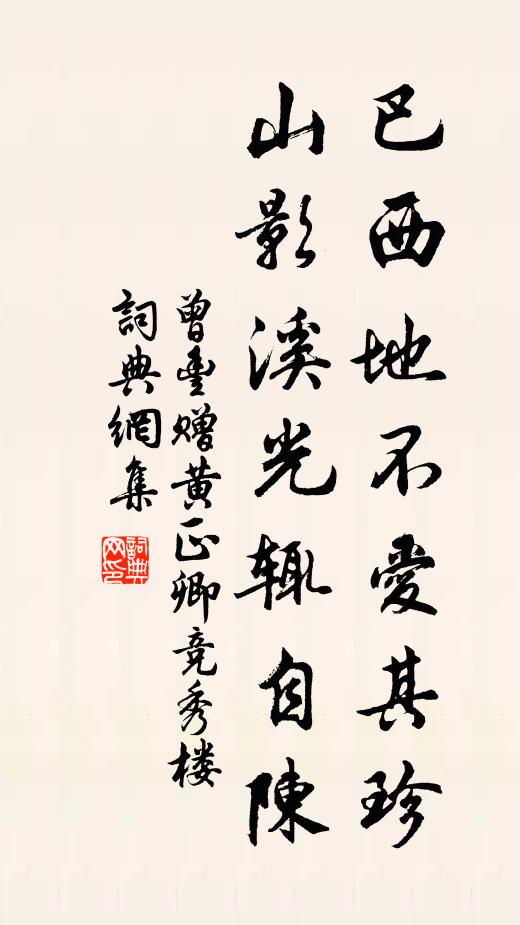 巴西地不愛其珍
山影溪光辄自陳
曾豊赠黄正卿竞秀楼
詞典網集
詞典网印